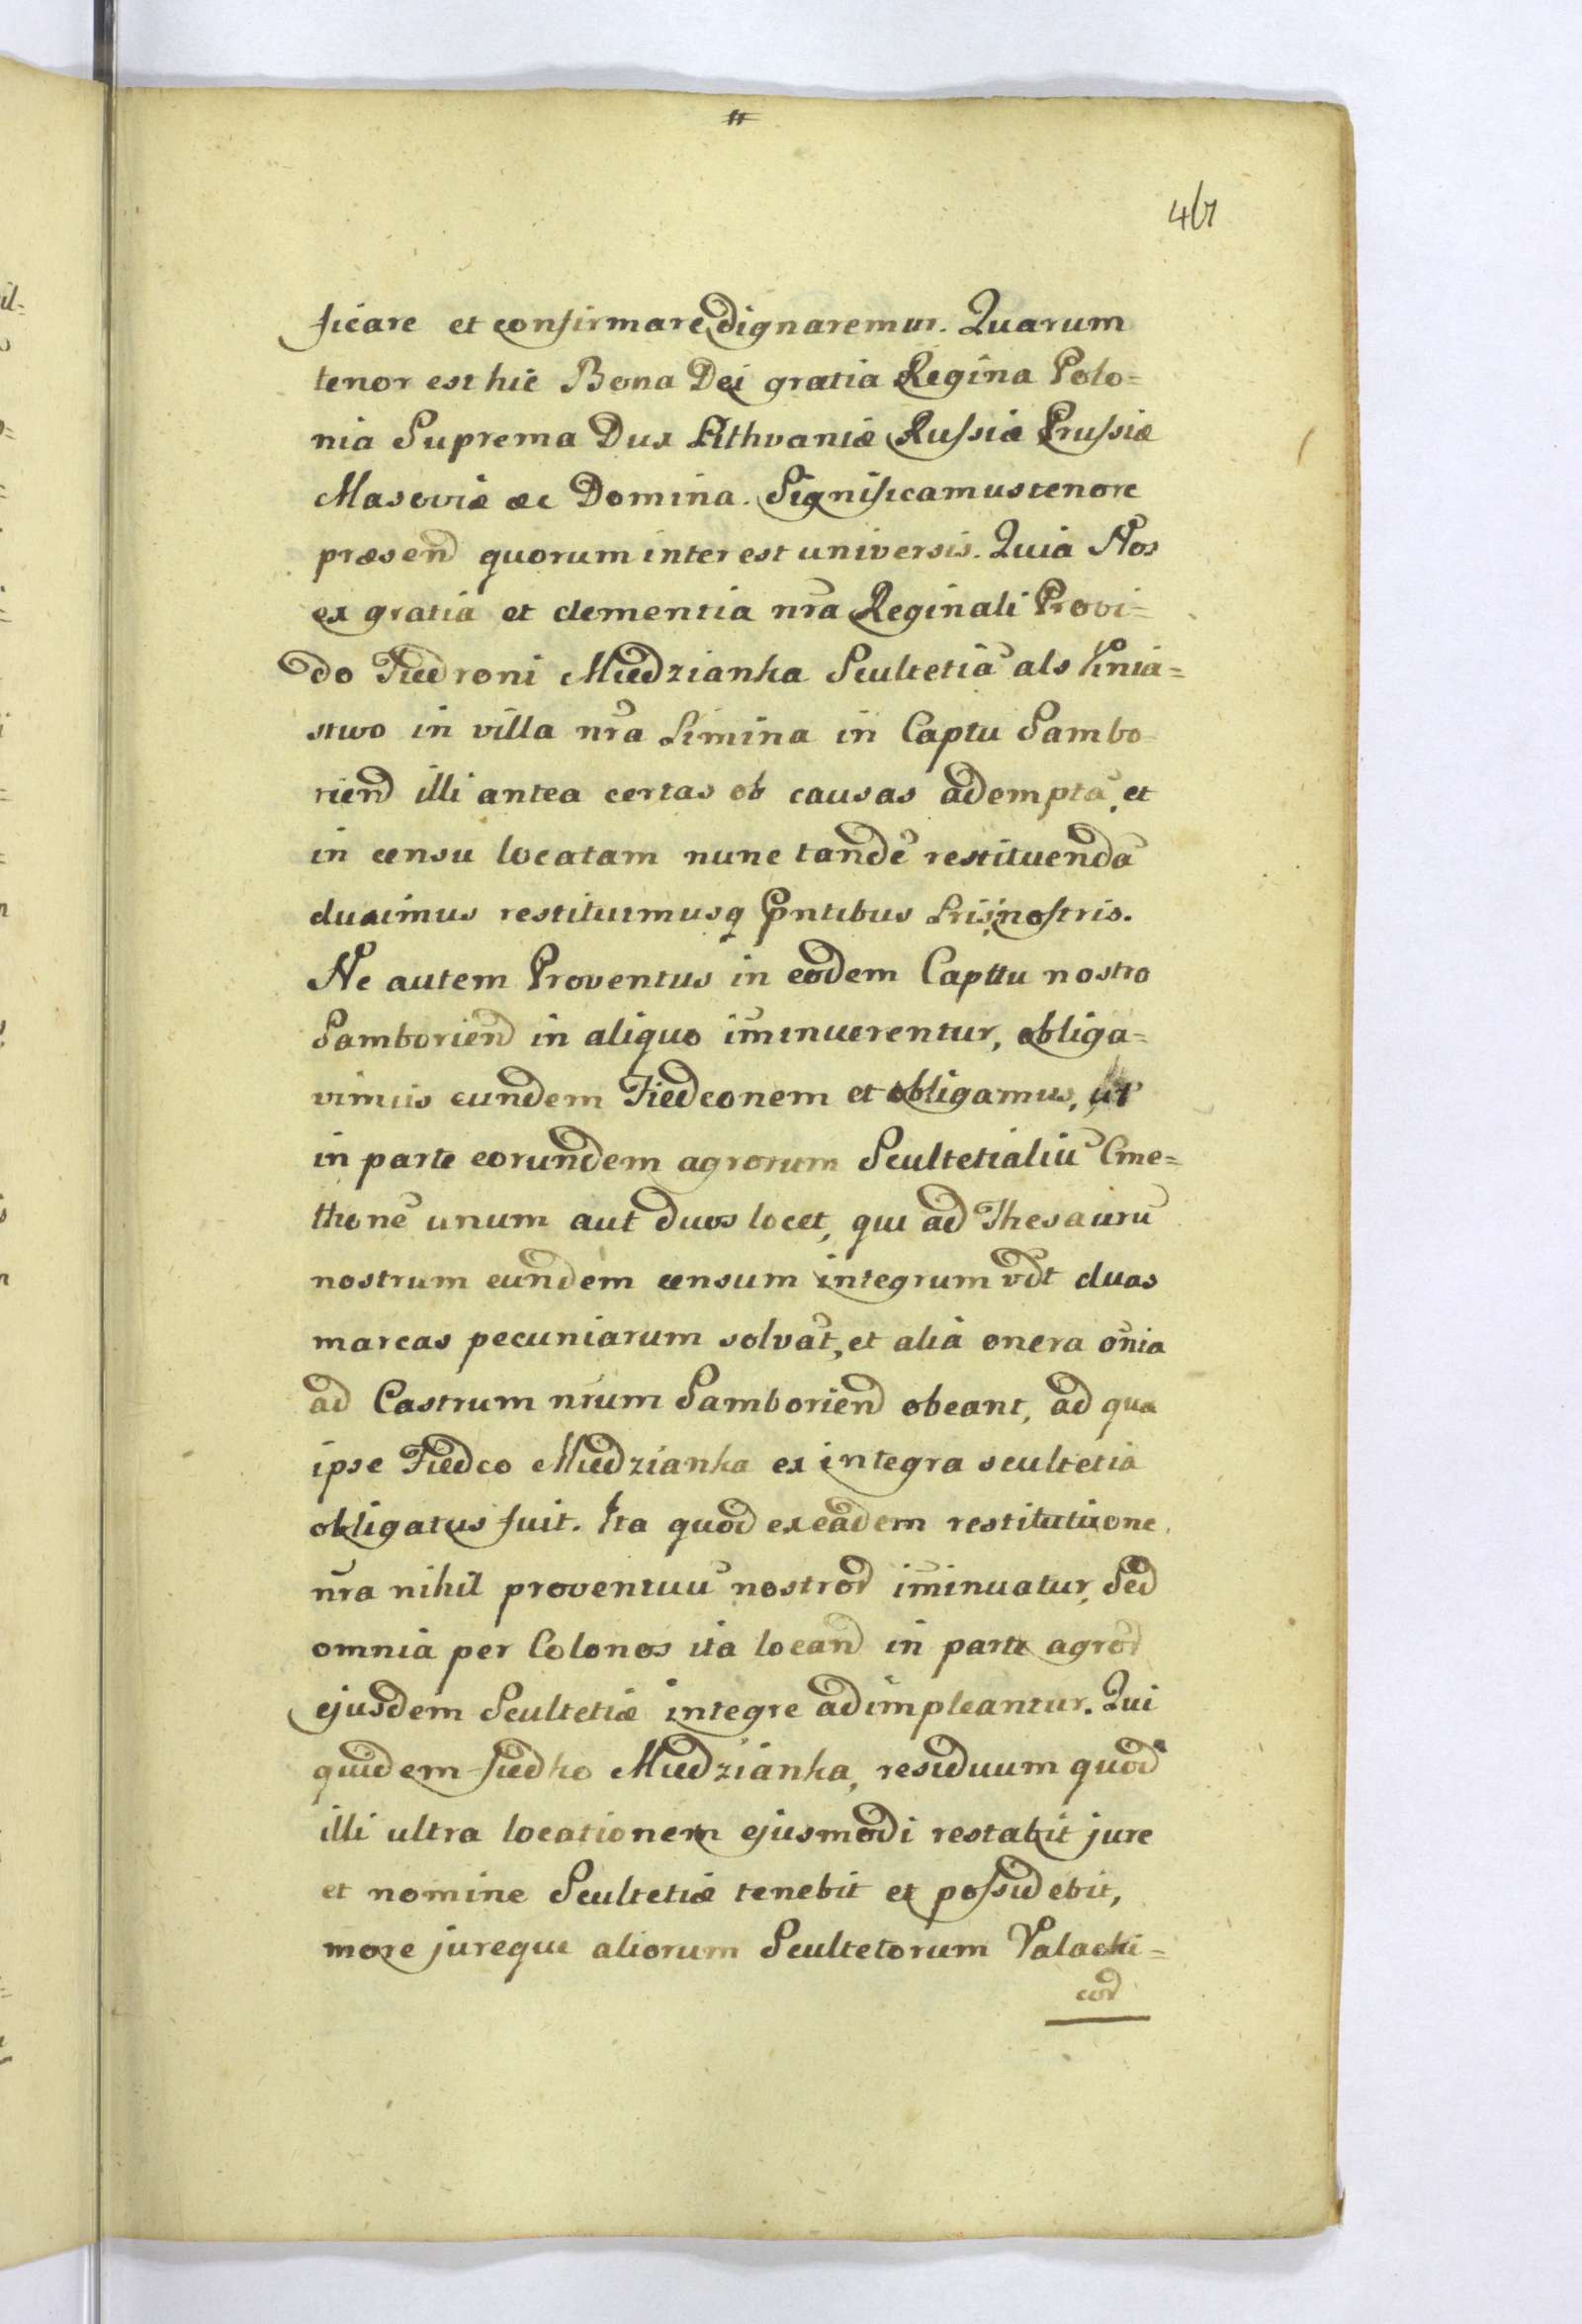 467
ficare et confirmare dignaremur. Quarum
tenor est hic Bona Dei gratia Regina Polo=
nia Suprema Dux Lithvaniæ Russiæ Prussiæ
Masoviæ æc Domina. Significamus tenore
præsend quorum interest universis. Quia Nos
ex gratia et clementia nr̃a Reginali Provi=
do Fiedroni Miedzianka Scultetiã als Knia=
stwo in villa nr̃a Limina in Captu Sambo=
riend illi antea certas ob causas ademptã, et
in censu locatam nunc tandẽ restituendã
duximus restituimusq pntibus Lris nostris.
Ne autem Proventus in eodem Capttu nostro
Samboriend in aliquo im̃inuerentur, obliga=
vimus eundem Fiedconem et obligamus, ut
in parte eorundem agrorum Scultetialiũ Cme=
thonẽ unum aut duos locet, qui ad Thesaurũ
nostrum eundem censum integrum vdt duas
marcas pecuniarum solvãt, et alia onera om̃ia
ad Castrum nrum Samboriend obeant, ad qua
ipse Fiedco Miedzianka ex integra scultetia
obligatus fuit. Ita quod ex eadem restitutione
nr̃a nihil proventuũ nostrod im̃inuatur, Sed
omnia per Colonos ita locand in parte agrod
ejusdem Scultetiæ integre adimpleantur. Qui
quidem fiedko Miedzianka, residuum quod
illi ultra locationem ejusmodi restabit jure
et nomine Scultetiæ tenebit et possidebit,
more jureque aliorum Scultetorum Valachi=
cod